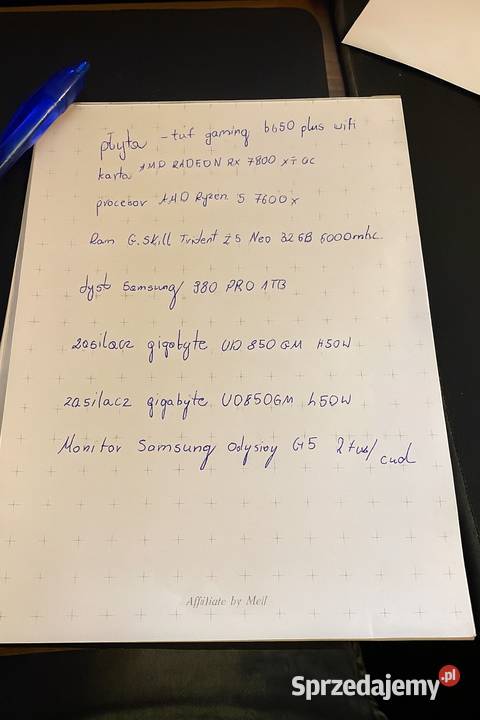 płyta - tuf gaming b650 plus wifi
karta AMD RADEON RX 7800 XT OC
procesor AMD Ryzen 5 7600x
Ram G.Skill Trident Z5 Neo 32GB 6000mhc
dysk Samsung 980 PRO 1TB
zasilacz gigabyte UD 850 GM
zasilacz gigabyte UD850GM
Monitor Samsung Odysioy G5
Affiliate by Meil
Sprzedajemy.pl